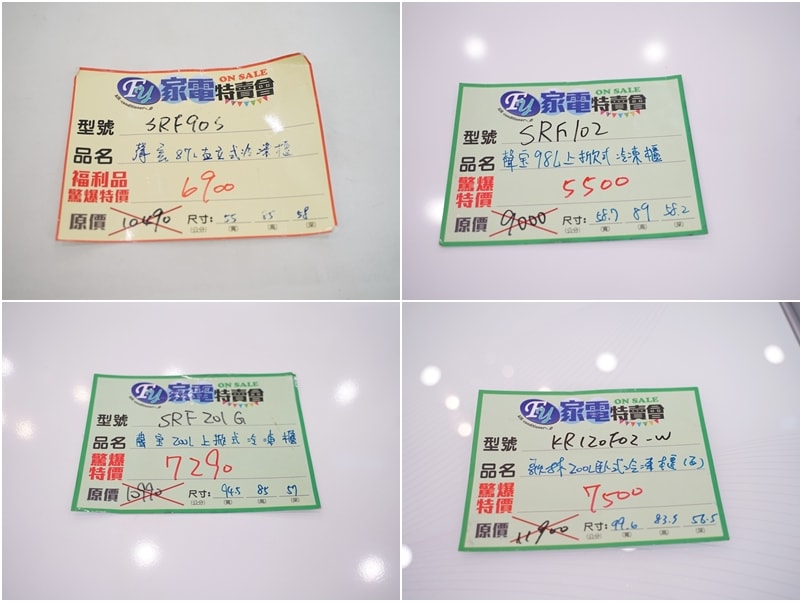 Fu 家電特賣會 ON SALE
型號 SRF90S
品名 聲寶 87L直立式冷凍櫃
福利品
驚爆特價 6900
原價 10490 尺寸: 55 85 58
(公分) (寬) (高) (深)
Fu 家電特賣會 ON SALE
型號 SRF102
品名 聲寶 98L上掀式冷凍櫃
驚爆
特價 5500
原價 9000 尺寸: 58.7 89 58.2
(公分) (寬) (高) (深)
Fu 家電特賣會 ON SALE
型號 SRF201G
品名 聲寶 200L上掀式冷凍櫃
驚爆
特價 7290
原價 尺寸: 94.5 85 57
(公分) (寬) (高) (深)
Fu 家電特賣會 ON SALE
型號 KR120F02-W
品名 歌林200L臥式冷凍櫃
驚爆
特價 7500
原價 11900 尺寸: 99.6 83.5 56.5
(公分) (寬) (高) (深)